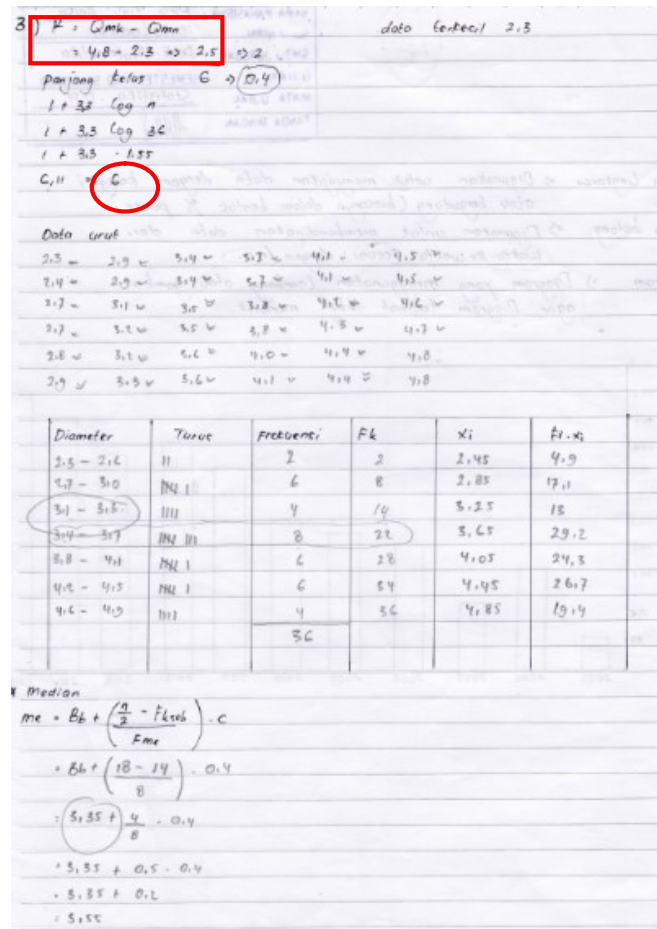 3) R = Qmk - Qmn data terkecil 2.3
= 4,8 - 2.3 => 2,5 => 2
panjang kelas 6 => 0,4
1 + 3,3 log n
1 + 3.3 log 36
1 + 3.3 . 1.55
6,11 = 6
Data urut
2.3 2,9 3,4 3.7 4,1 4,5
2,4 2,9 3,4 3,7 4,1 4,5
2,7 3,1 3,5 3,8 4,2 4,6
2,7 3.2 3.5 3,8 4.3 4,7
2.8 3,2 3,6 4,0 4,4 4,8
2,9 3,3 3,6 4,1 4,4 4,8
Diameter Turus Frekuensi Fk xi Fi.xi
2.3 - 2,6 || 2 2 2,45 4.9
2,7 - 3,0 6 8 2,85 17,1
3,1 - 3,3 |||| 4 14 3.25 13
3,4 - 3,7 8 22 3,65 29,2
3,8 - 4,1 6 28 4,05 24,3
4,2 - 4,5 6 34 4,45 26,7
4,6 - 4,9 |||| 4 36 4,85 19,4
36
Median
me = Bb + (n/2 - Fkseb / Fme) . c
= Bb + (18 - 14 / 8) . 0,4
= 3,35 + 4/8 . 0,4
= 3,35 + 0,5 . 0,4
= 3,35 + 0,2
= 3,55